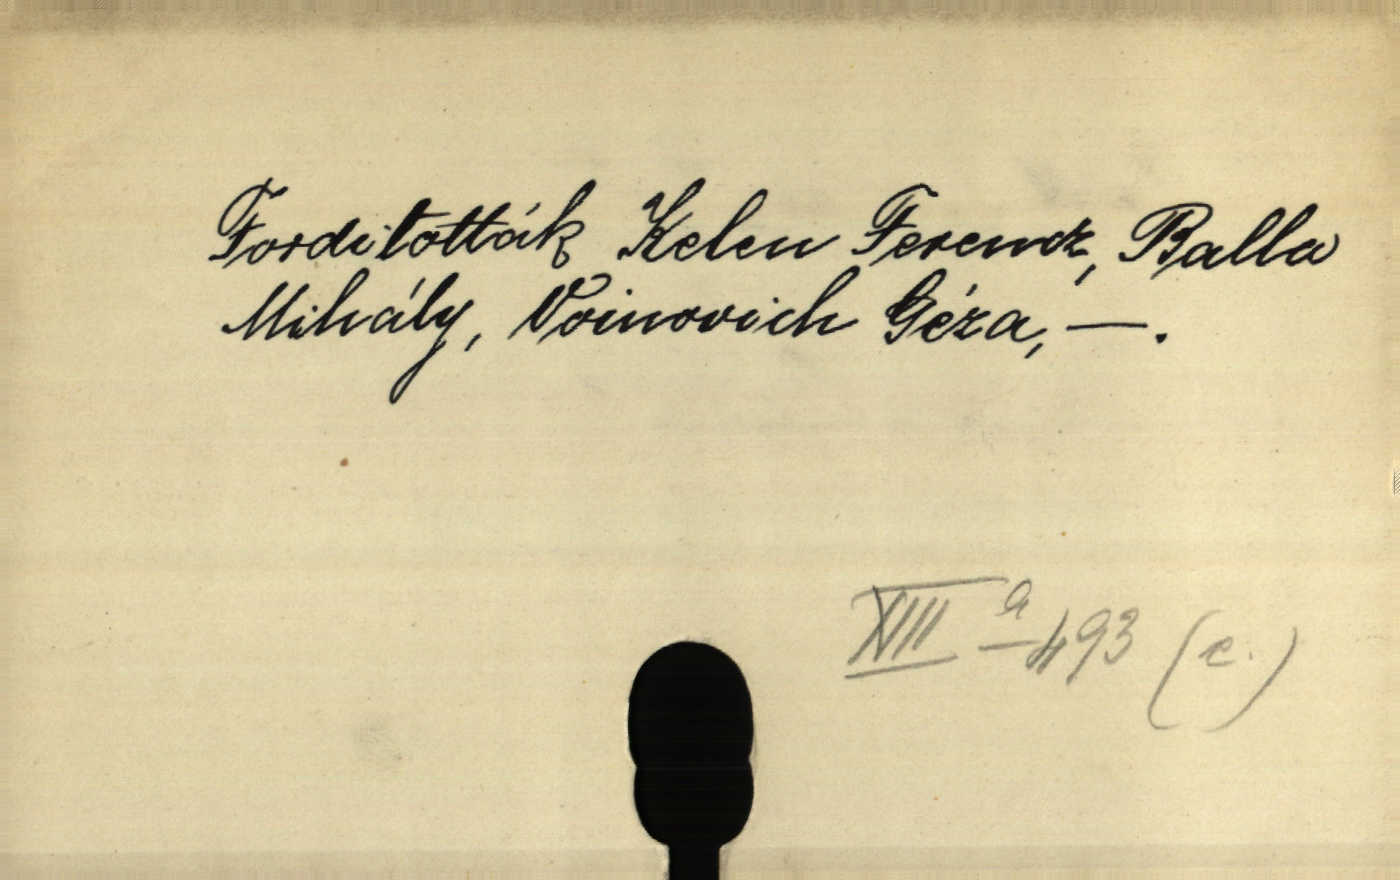 Forditották Kelen Ferencz, Balla
Mihály, Voinovich Géza, — .
XIII a — 493 (c.)